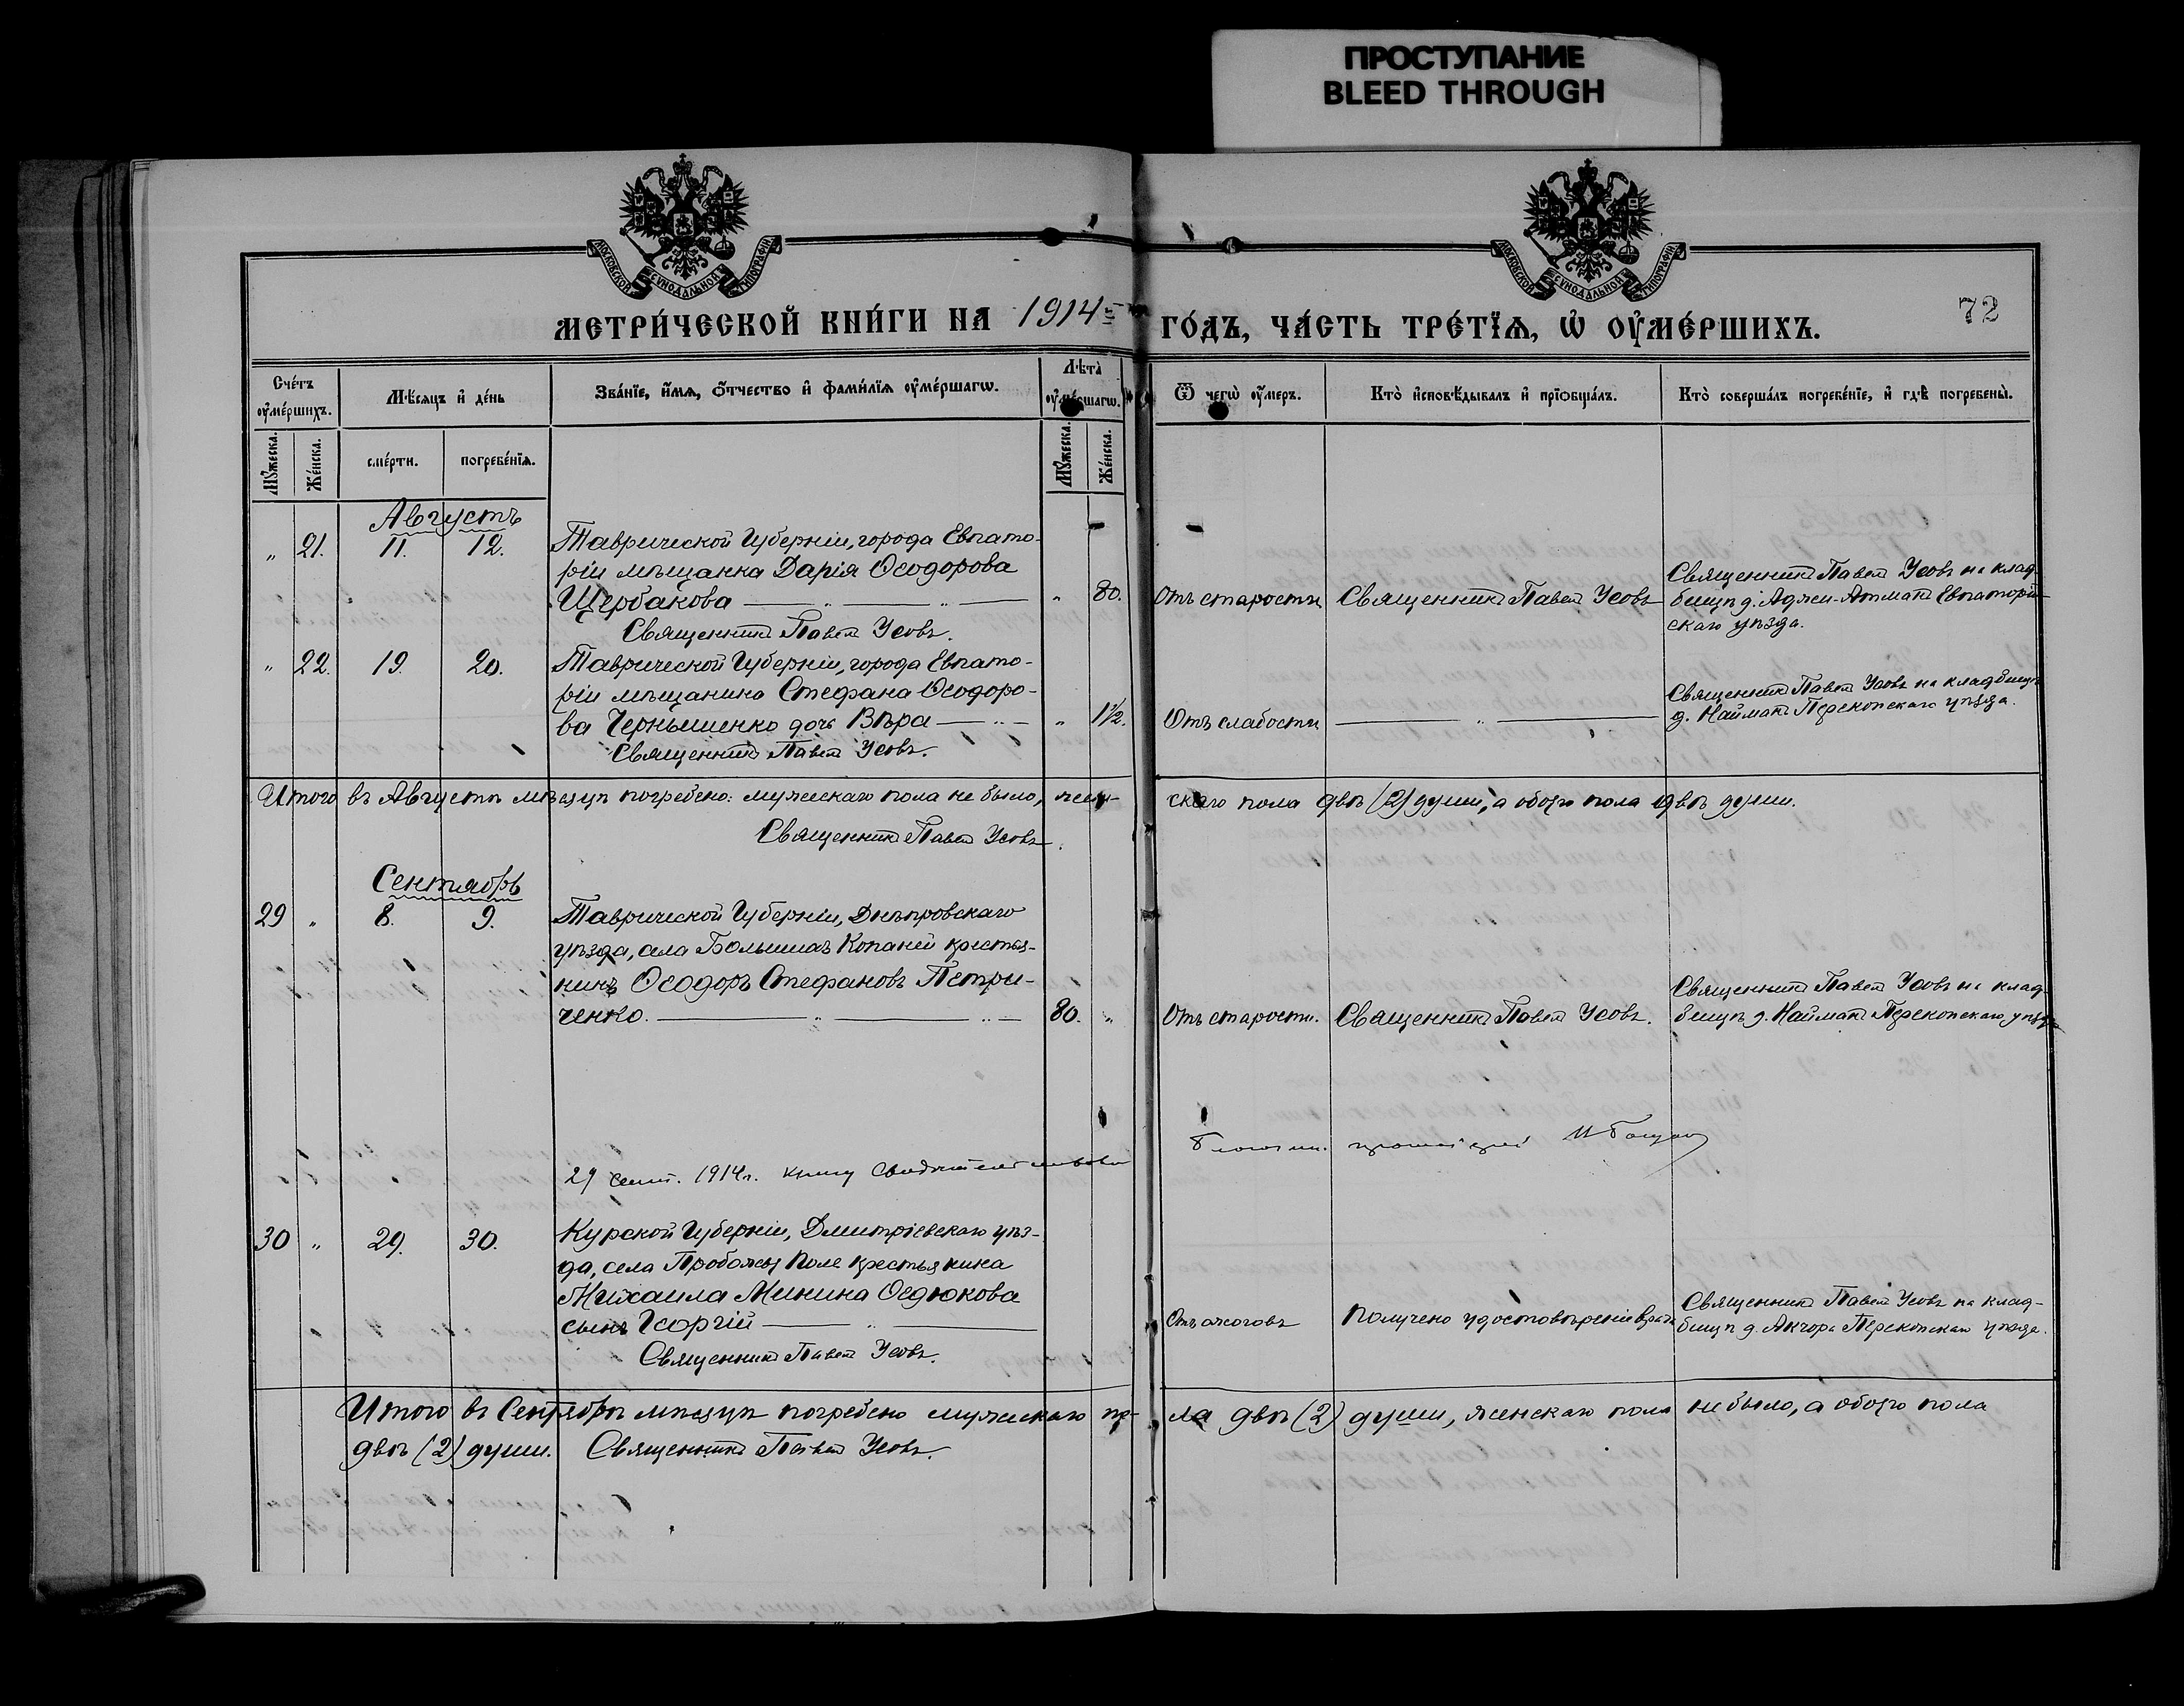 ПРОСТУПАНИЕ
BLEED THROUGH
МОСКОВСКОЙ СѴНОДАЛЬНОЙ ТИПОГРАФІИ
МОСКОВСКОЙ СѴНОДАЛЬНОЙ ТИПОГРАФІИ
МЕТРИ́ЧЕСКОЙ КНИ́ГИ НА 1914 ГО́ДЪ, ЧА́СТЬ ТРЕ́ТЇѦ, Ѡ҆ ОУ҆МЕ́РШИХЪ.
72
Сче́тъ оу҆ме́ршихъ.
Мꙋ́жеска.
Же́нска.
Мѣ́сяцъ и҆ де́нь
сме́рти.
погребе́нїѧ.
Зва́нїе, и҆́мѧ, ѻ҆́тчество и҆ фами́лїѧ оу҆ме́ршагѡ.
Лѣта̀ оу҆ме́ршагѡ.
Мꙋ́жеска.
Же́нска.
Ѿ чегѡ̀ оу҆́меръ.
Кто̀ и҆сповѣ́дывалъ и҆ прїѻбща́лъ.
Кто̀ соверша́лъ погребе́нїе, и҆ гдѣ̀ погребены̀.
Августъ
„ 21. 11. 12. Таврической Губерніи, города Евпато-
ріи мѣщанка Дарія Ѳеодорова
Щербакова „ 80. Отъ старости Священникъ Павелъ Усовъ
Священникъ Павелъ Усовъ на клад-
бищѣ д. Аджи-Атманъ Евпаторій-
скаго уѣзда.
Священникъ Павелъ Усовъ.
„ 22. 19. 20. Таврической Губерніи, города Евпато-
ріи мѣщанина Стефана Ѳеодоро-
ва Чернышенко дочь Вѣра „ 1½. Отъ слабости „
Священникъ Павелъ Усовъ на кладбищѣ
д. Найманъ Перекопскаго уѣзда.
Священникъ Павелъ Усовъ.
Итого въ Августѣ мѣсяцѣ погребено: мужескаго пола не было, жен-
скаго пола двѣ (2) души, а обоего пола двѣ души.
Священникъ Павелъ Усовъ.
Сентябрь
29 „ 8. 9. Таврической Губерніи, Днѣпровскаго
уѣзда, села Большихъ Копаней крестья-
нинъ Ѳеодоръ Стефановъ Петри-
ченко. 80. „ Отъ старости. Священникъ Павелъ Усовъ.
Священникъ Павелъ Усовъ на клад-
бищѣ д. Найманъ Перекопскаго уѣзда
29 сент. 1914 г. книгу свидѣтельствовалъ
30 „ 29. 30. Курской Губерніи, Дмитріевскаго уѣз-
да, села Пробожья Поле крестьянина
Михаила Минина Ѳедюкова
сынъ Георгій Отъ ожоговъ Получено удостовѣреніе врача
Священникъ Павелъ Усовъ на клад-
бищѣ д. Акчора Перекопскаго уѣзда.
Священникъ Павелъ Усовъ.
Итого въ Сентябрѣ мѣсяцѣ погребено мужескаго по-
ла двѣ (2) души, женскаго пола не было, а обоего пола
двѣ (2) души. Священникъ Павелъ Усовъ.